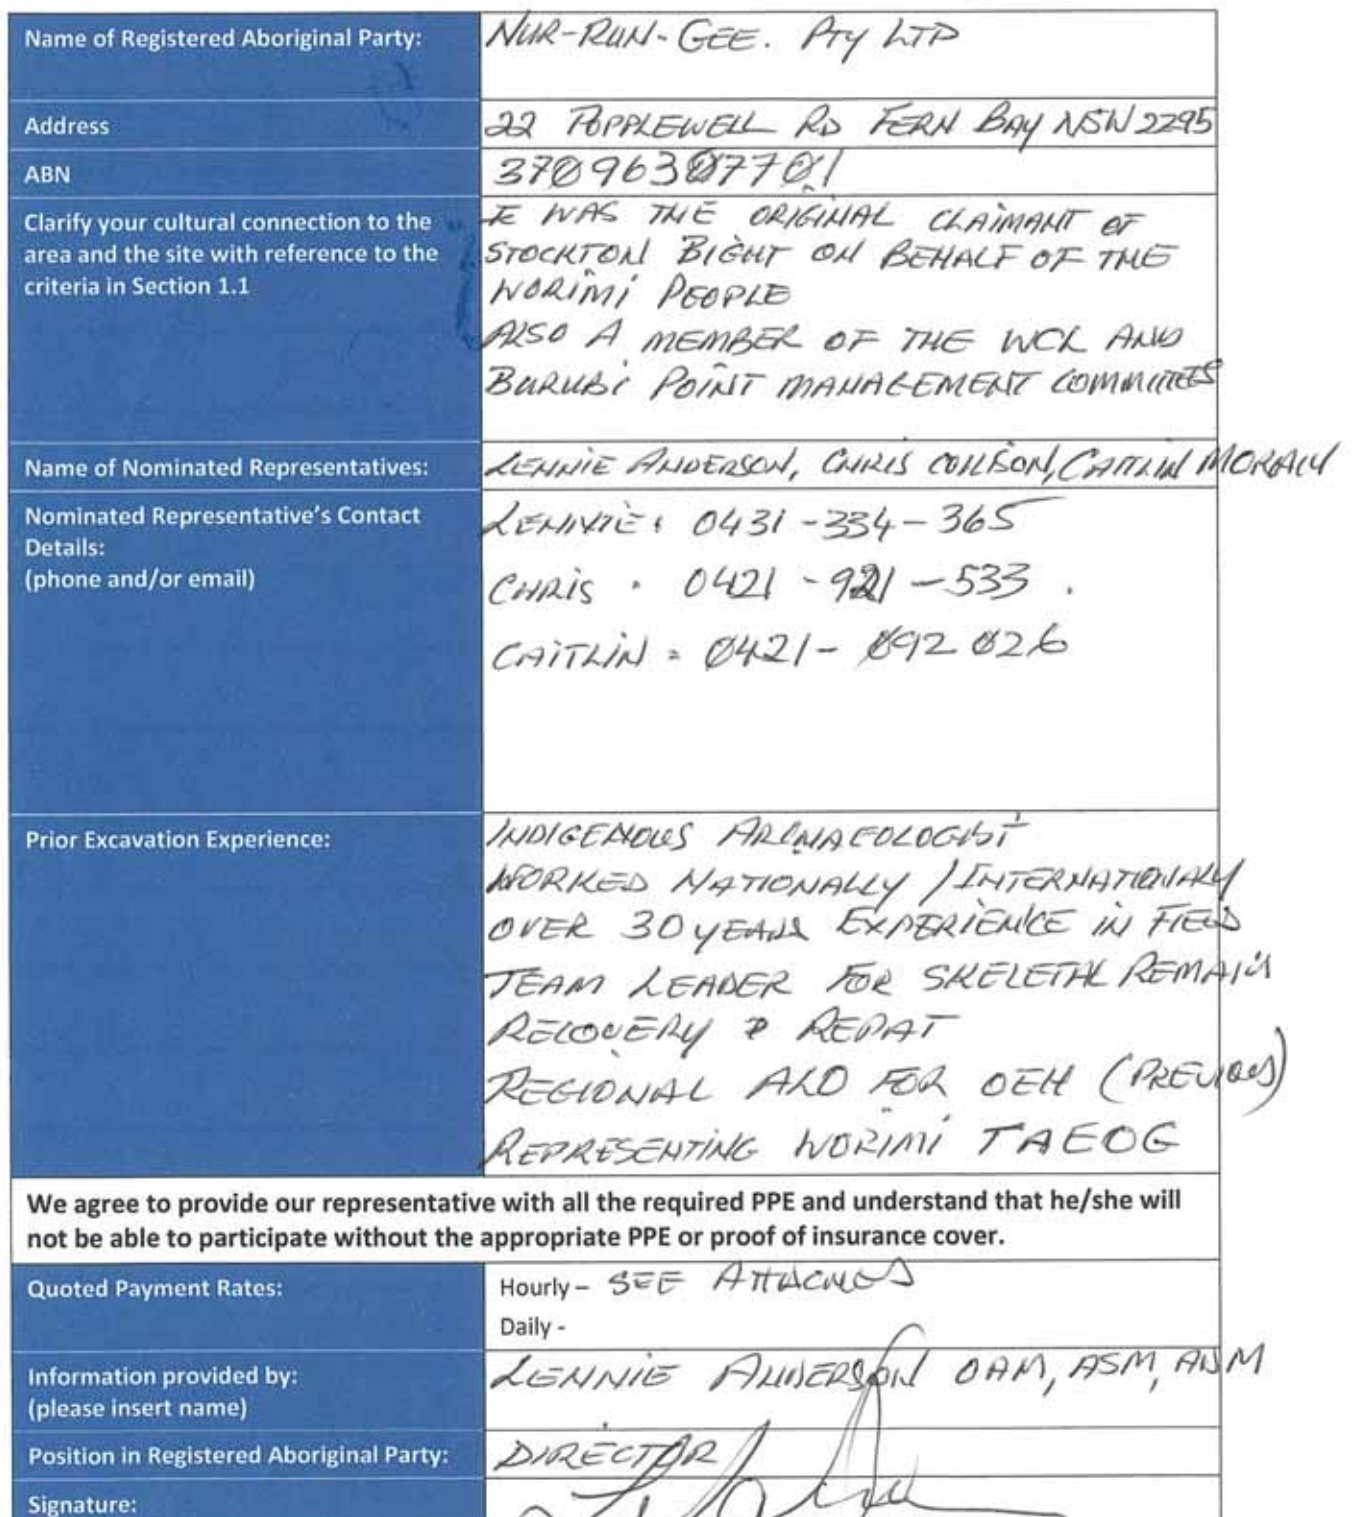 Name of Registered Aboriginal Party: NUR-RUN-GEE. PTY LTD
Address 22 POPPLEWELL RD FERN BAY NSW 2295
ABN 37096307701
Clarify your cultural connection to the
area and the site with reference to the
criteria in Section 1.1
I WAS THE ORIGINAL CLAIMANT OF
STOCKTON BIGHT ON BEHALF OF THE
WORIMI PEOPLE
ALSO A MEMBER OF THE WCL AND
BURUBI POINT MANAGEMENT COMMITTEES
Name of Nominated Representatives: LENNIE ANDERSON, CHRIS COLLISON, CAITLIN
Nominated Representative's Contact
Details:
(phone and/or email)
LENNIE: 0431-334-365
CHRIS. 0421-921-533.
CAITLIN = 0421-092 026
Prior Excavation Experience:
INDIGENOUS ARCHAEOLOGIST
WORKED NATIONALLY / INTERNATIONALY
OVER 30 YEARS EXPERIENCE IN FIELD
TEAM LEADER FOR SKELETAL REMAINS
RECOVERY & REPAT
REGIONAL ALO FOR OEH (PREVIOUS)
REPRESENTING WORIMI TAEOG
We agree to provide our representative with all the required PPE and understand that he/she will
not be able to participate without the appropriate PPE or proof of insurance cover.
Quoted Payment Rates:
Hourly – SEE ATTACHED
Daily -
Information provided by:
(please insert name)
LENNIE ANDERSON OAM, ASM, ANM
Position in Registered Aboriginal Party: DIRECTOR
Signature: